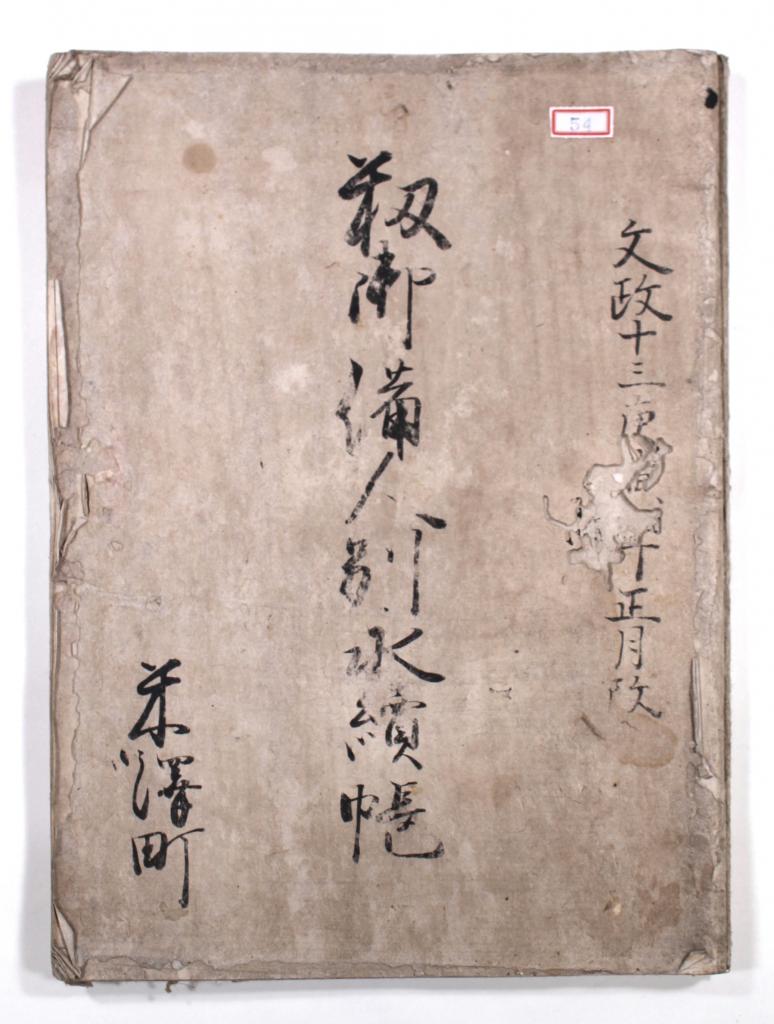 54
文政十三庚寅年正月改
籾御備人別永續帳
米澤町